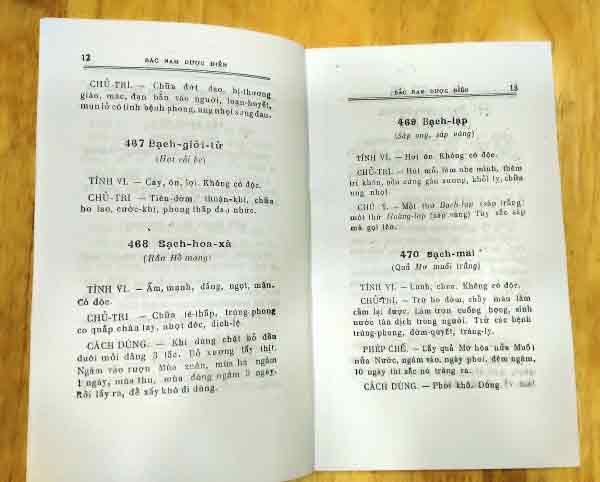 12 BẮC NAM DƯỢC ĐIỂN
CHỦ-TRỊ. — Chữa đứt đao, bị-thương
giáo, mác, đạn bắn vào người, loạn-huyết,
mụn lở có tính bệnh phong, ung nhọt sưng đau.
467 Bạch-giới-tử
(Hột cải bẹ)
TÍNH VỊ. — Cay, ôn, lợi. Không có độc.
CHỦ-TRỊ — Tiên-đờm thuận-khí, chữa
ho lao, cước-khí, phong thấp đau nhức.
468 Bạch-hoa-xà
(Rắn Hổ mang)
TÍNH VỊ. — Ấm, mạnh, đắng, ngọt, mặn.
Có độc.
CHỦ-TRỊ — Chữa tê-thấp, trúng-phong
co quắp chân tay, nhọt độc, dịch-lệ.
CÁCH DÙNG. — Khi dùng chặt bỏ đầu
đuôi mỗi đằng 3 tấc. Bỏ xương lấy thịt.
Ngâm vào rượu Mùa xuân, mùa hạ ngâm
1 ngày, mùa thu, mùa đông ngâm 3 ngày.
Rồi lấy ra, để xấy khô đi dùng.
BẮC NAM DƯỢC ĐIỂN 13
469 Bạch-lạp
(Sáp ong, sáp vàng)
TÍNH VỊ. — Hơi ôn. Không có độc.
CHỦ-TRỊ. — Hút mỏ, làm nhẹ mình, thêm
trí khôn, bền cứng gân xương, khỏi lỵ, chữa
ung nhọt.
CHÚ Ý. — Một thứ Bạch-lạp (sáp trắng)
một thứ Hoàng-lạp (sáp vàng) Tùy sắc sáp
mà gọi tên.
470 Bạch-mai
(Quả Mơ muối trắng)
TÍNH VỊ. — Lành, chua. Không có độc.
CHỦ-TRỊ. — Trừ ho đờm, chảy máu làm
cầm lại được. Làm trơn cuống họng, sinh
nước tân dịch trong người. Trừ các bệnh
trúng-phong, đờm-quyết, tràng-lỵ.
PHÉP CHẾ. — Lấy quả Mơ hòa nửa Muối
nửa Nước, ngâm vào, ngày phơi, đêm ngâm,
10 ngày thì sắc nó trắng ra.
CÁCH DÙNG. — Phơi khô. Dùng